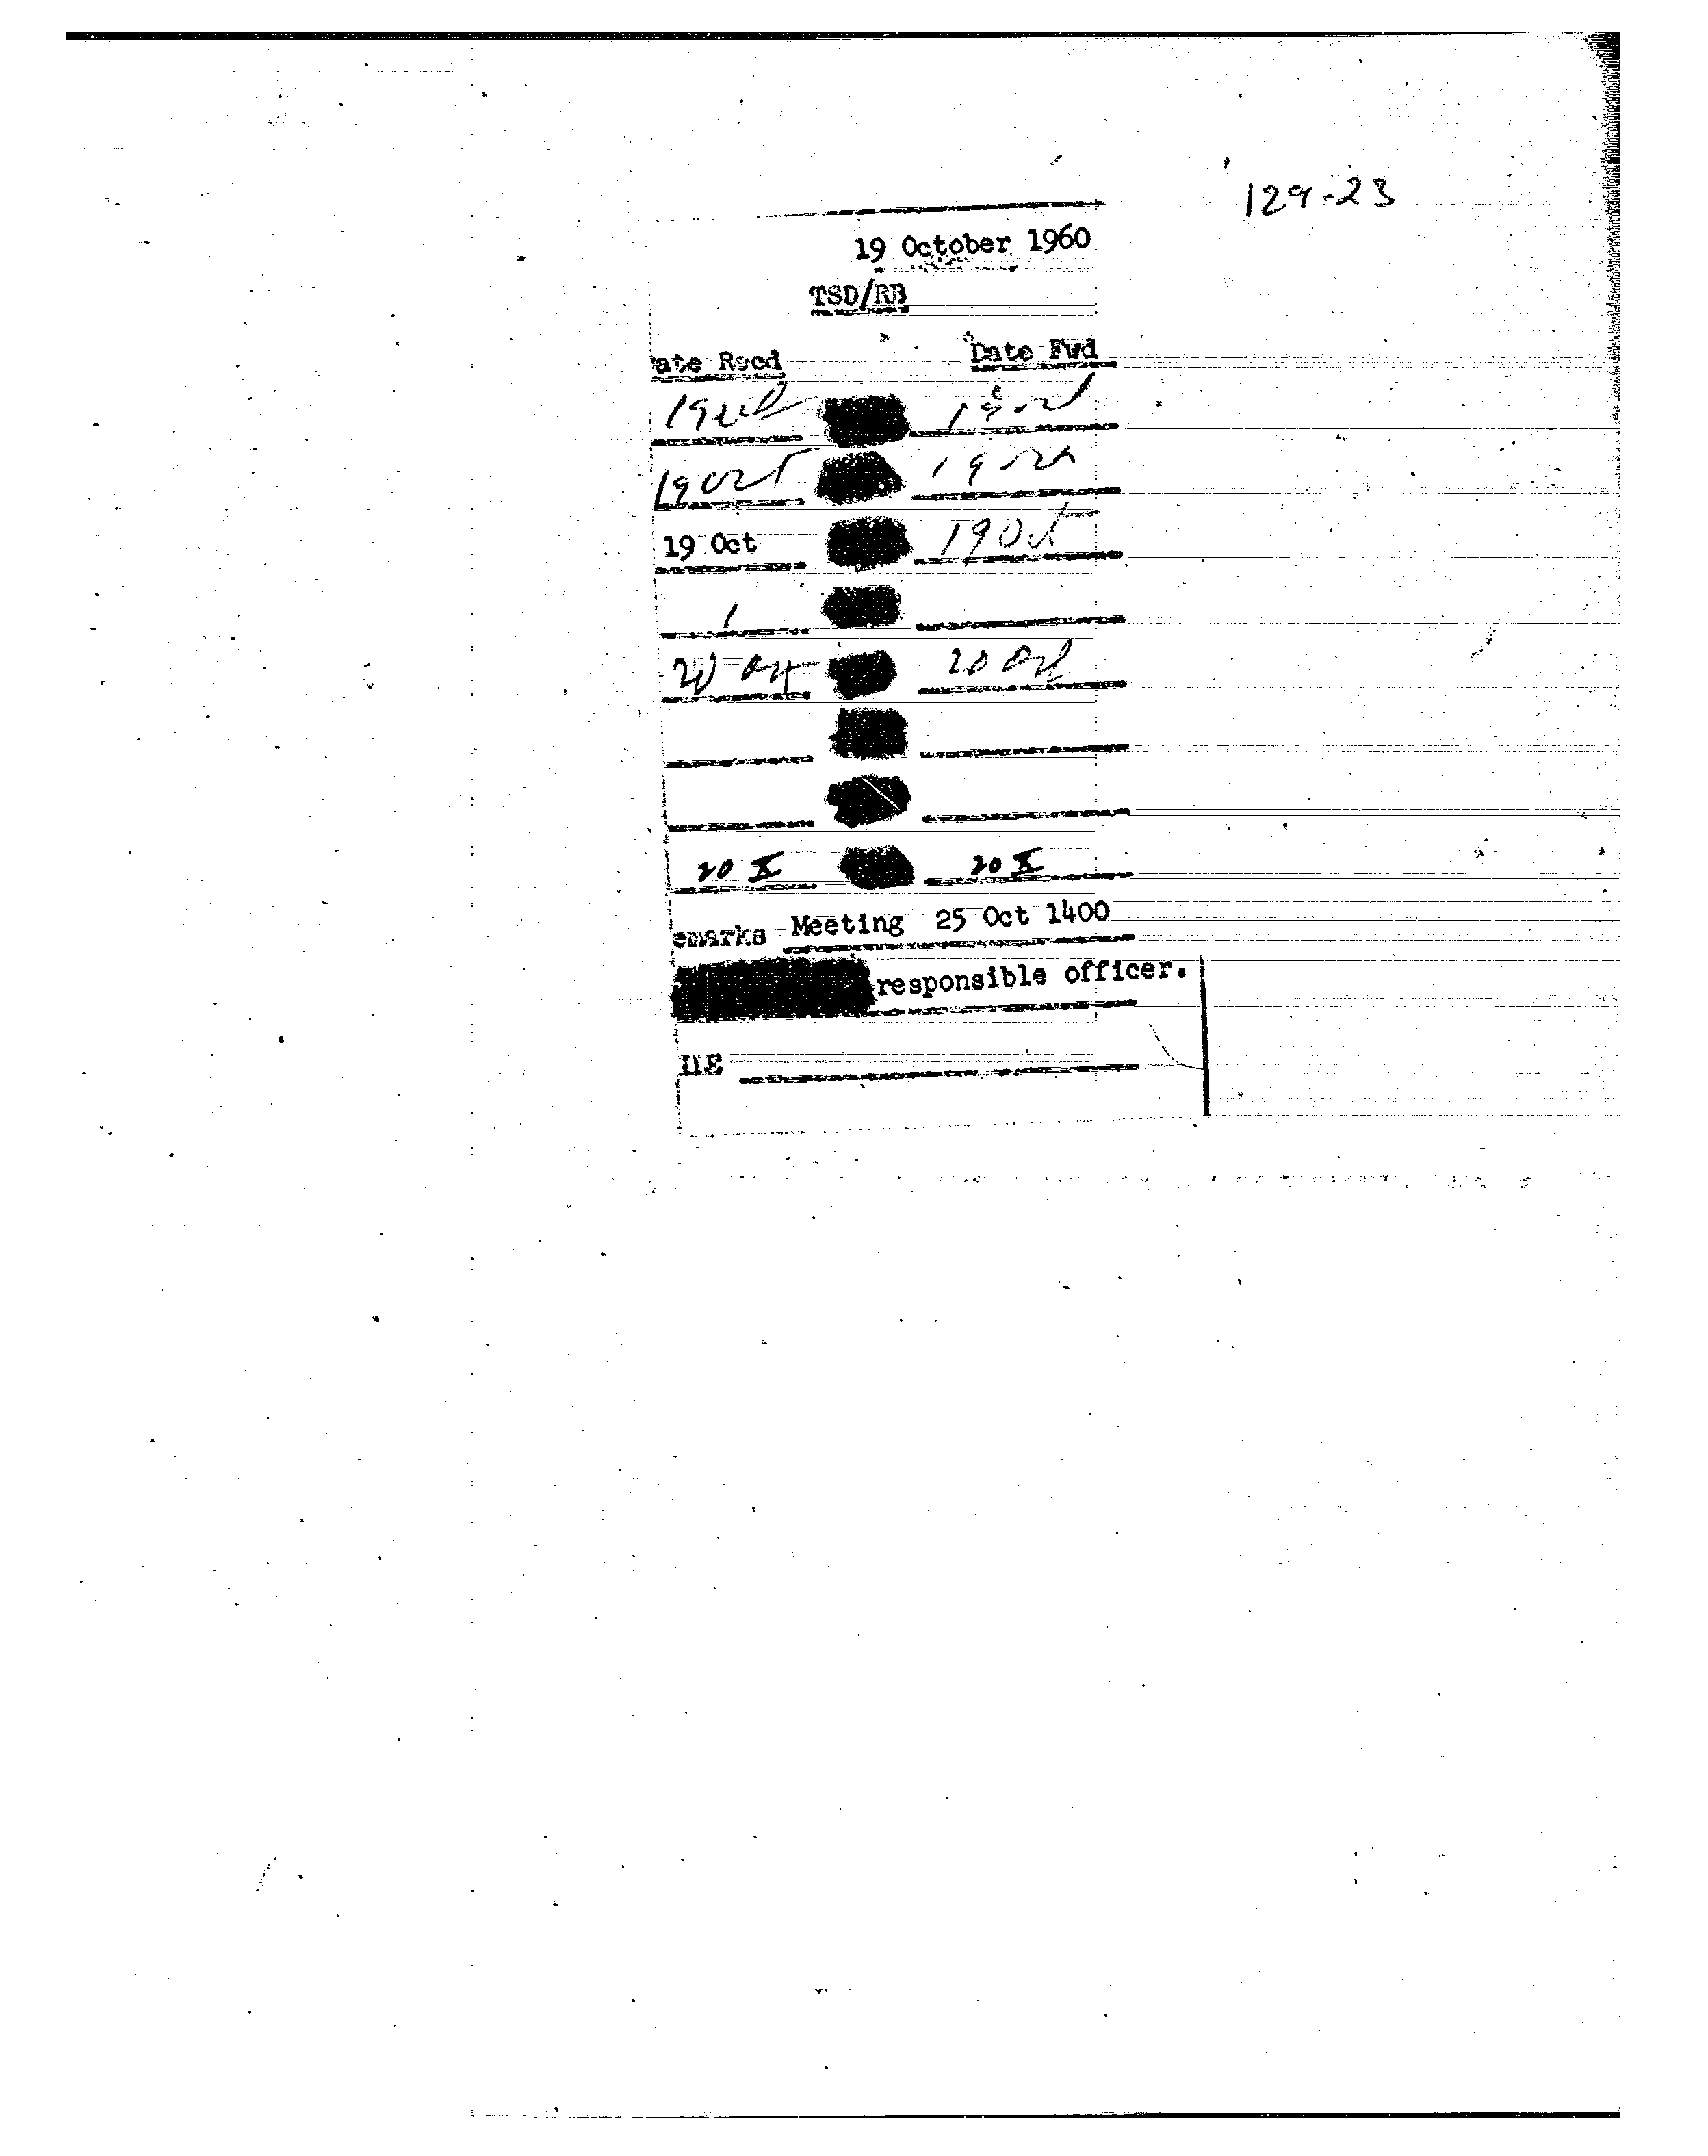 129-23
19 October 1960
TSD/RB
ate Recd Date Fwd
19 Oct 19 Oct
19 Oct 19 Oct
19 Oct 19 Oct
20 Oct 20 Oct
20 X 20 X
emarks Meeting 25 Oct 1400
responsible officer.
ILE